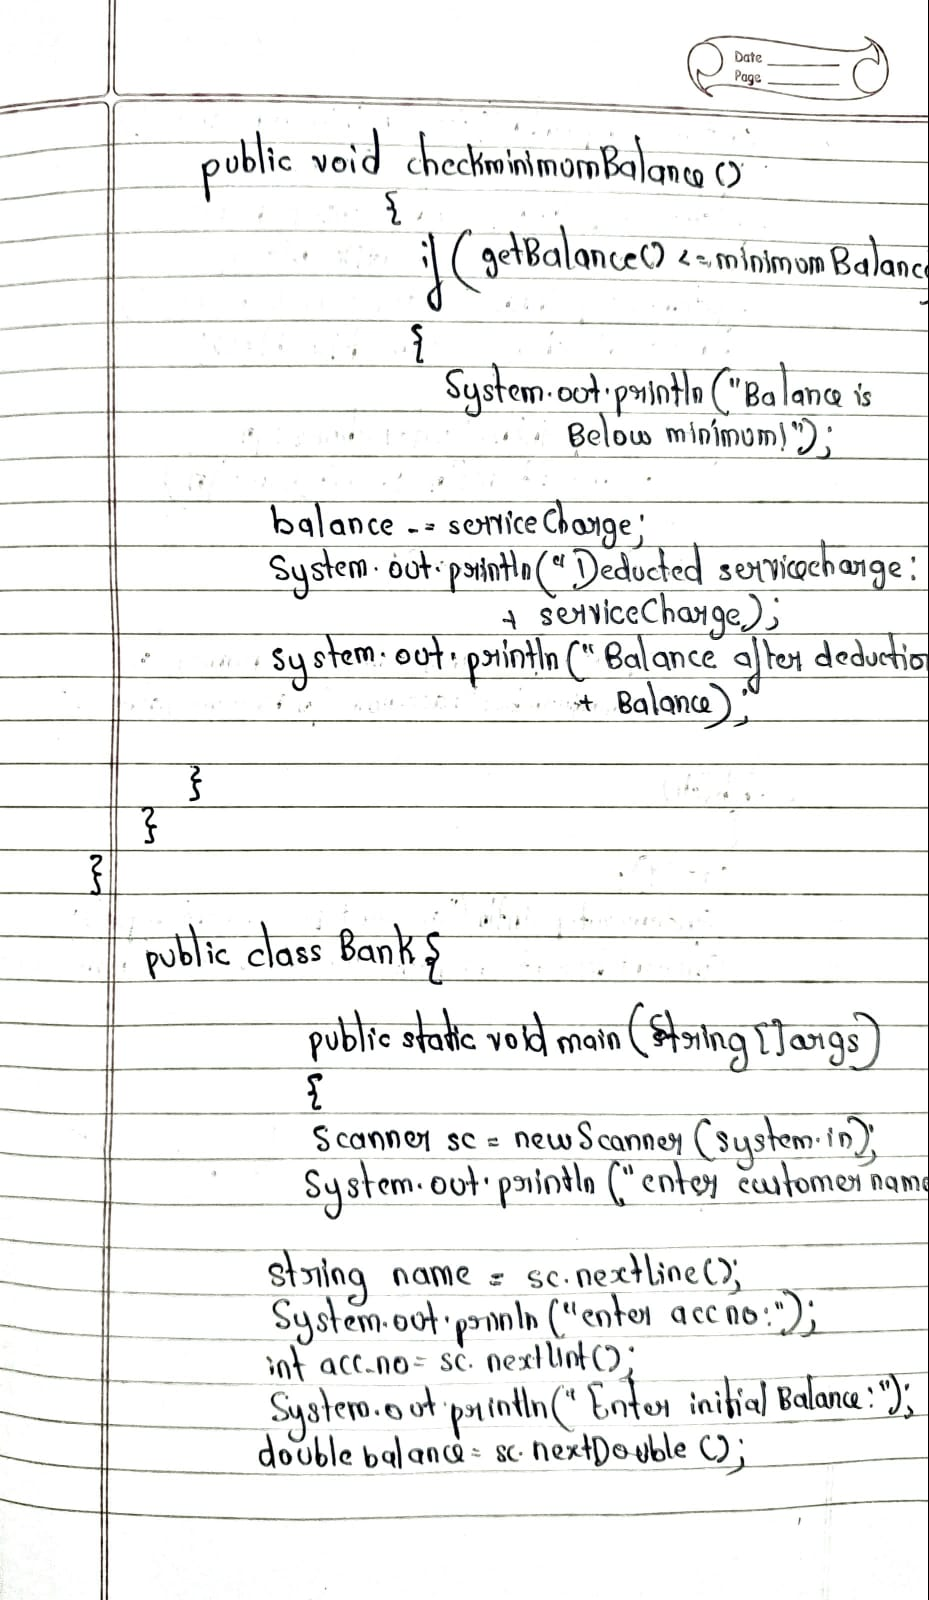 Date
Page
public void checkminimomBalance ()
{
if (getBalance() <= minimom Balance
{
System.out.println ("Balance is
Below minimum!");
balance -= service Charge;
System.out.println ("Deducted servicecharge:
+ serviceCharge);
system.out.println ("Balance after deduction
+ Balance);
}
}
}
public class Bank {
public static void main (String []args)
{
Scanner sc = new Scanner (system.in);
System.out.println ("enter customer name
string name = sc.nextline();
System.out.println ("enter acc no:");
int acc_no = sc.nextInt();
System.out.println ("Enter initial Balance:");
double balance = sc.nextDouble ();